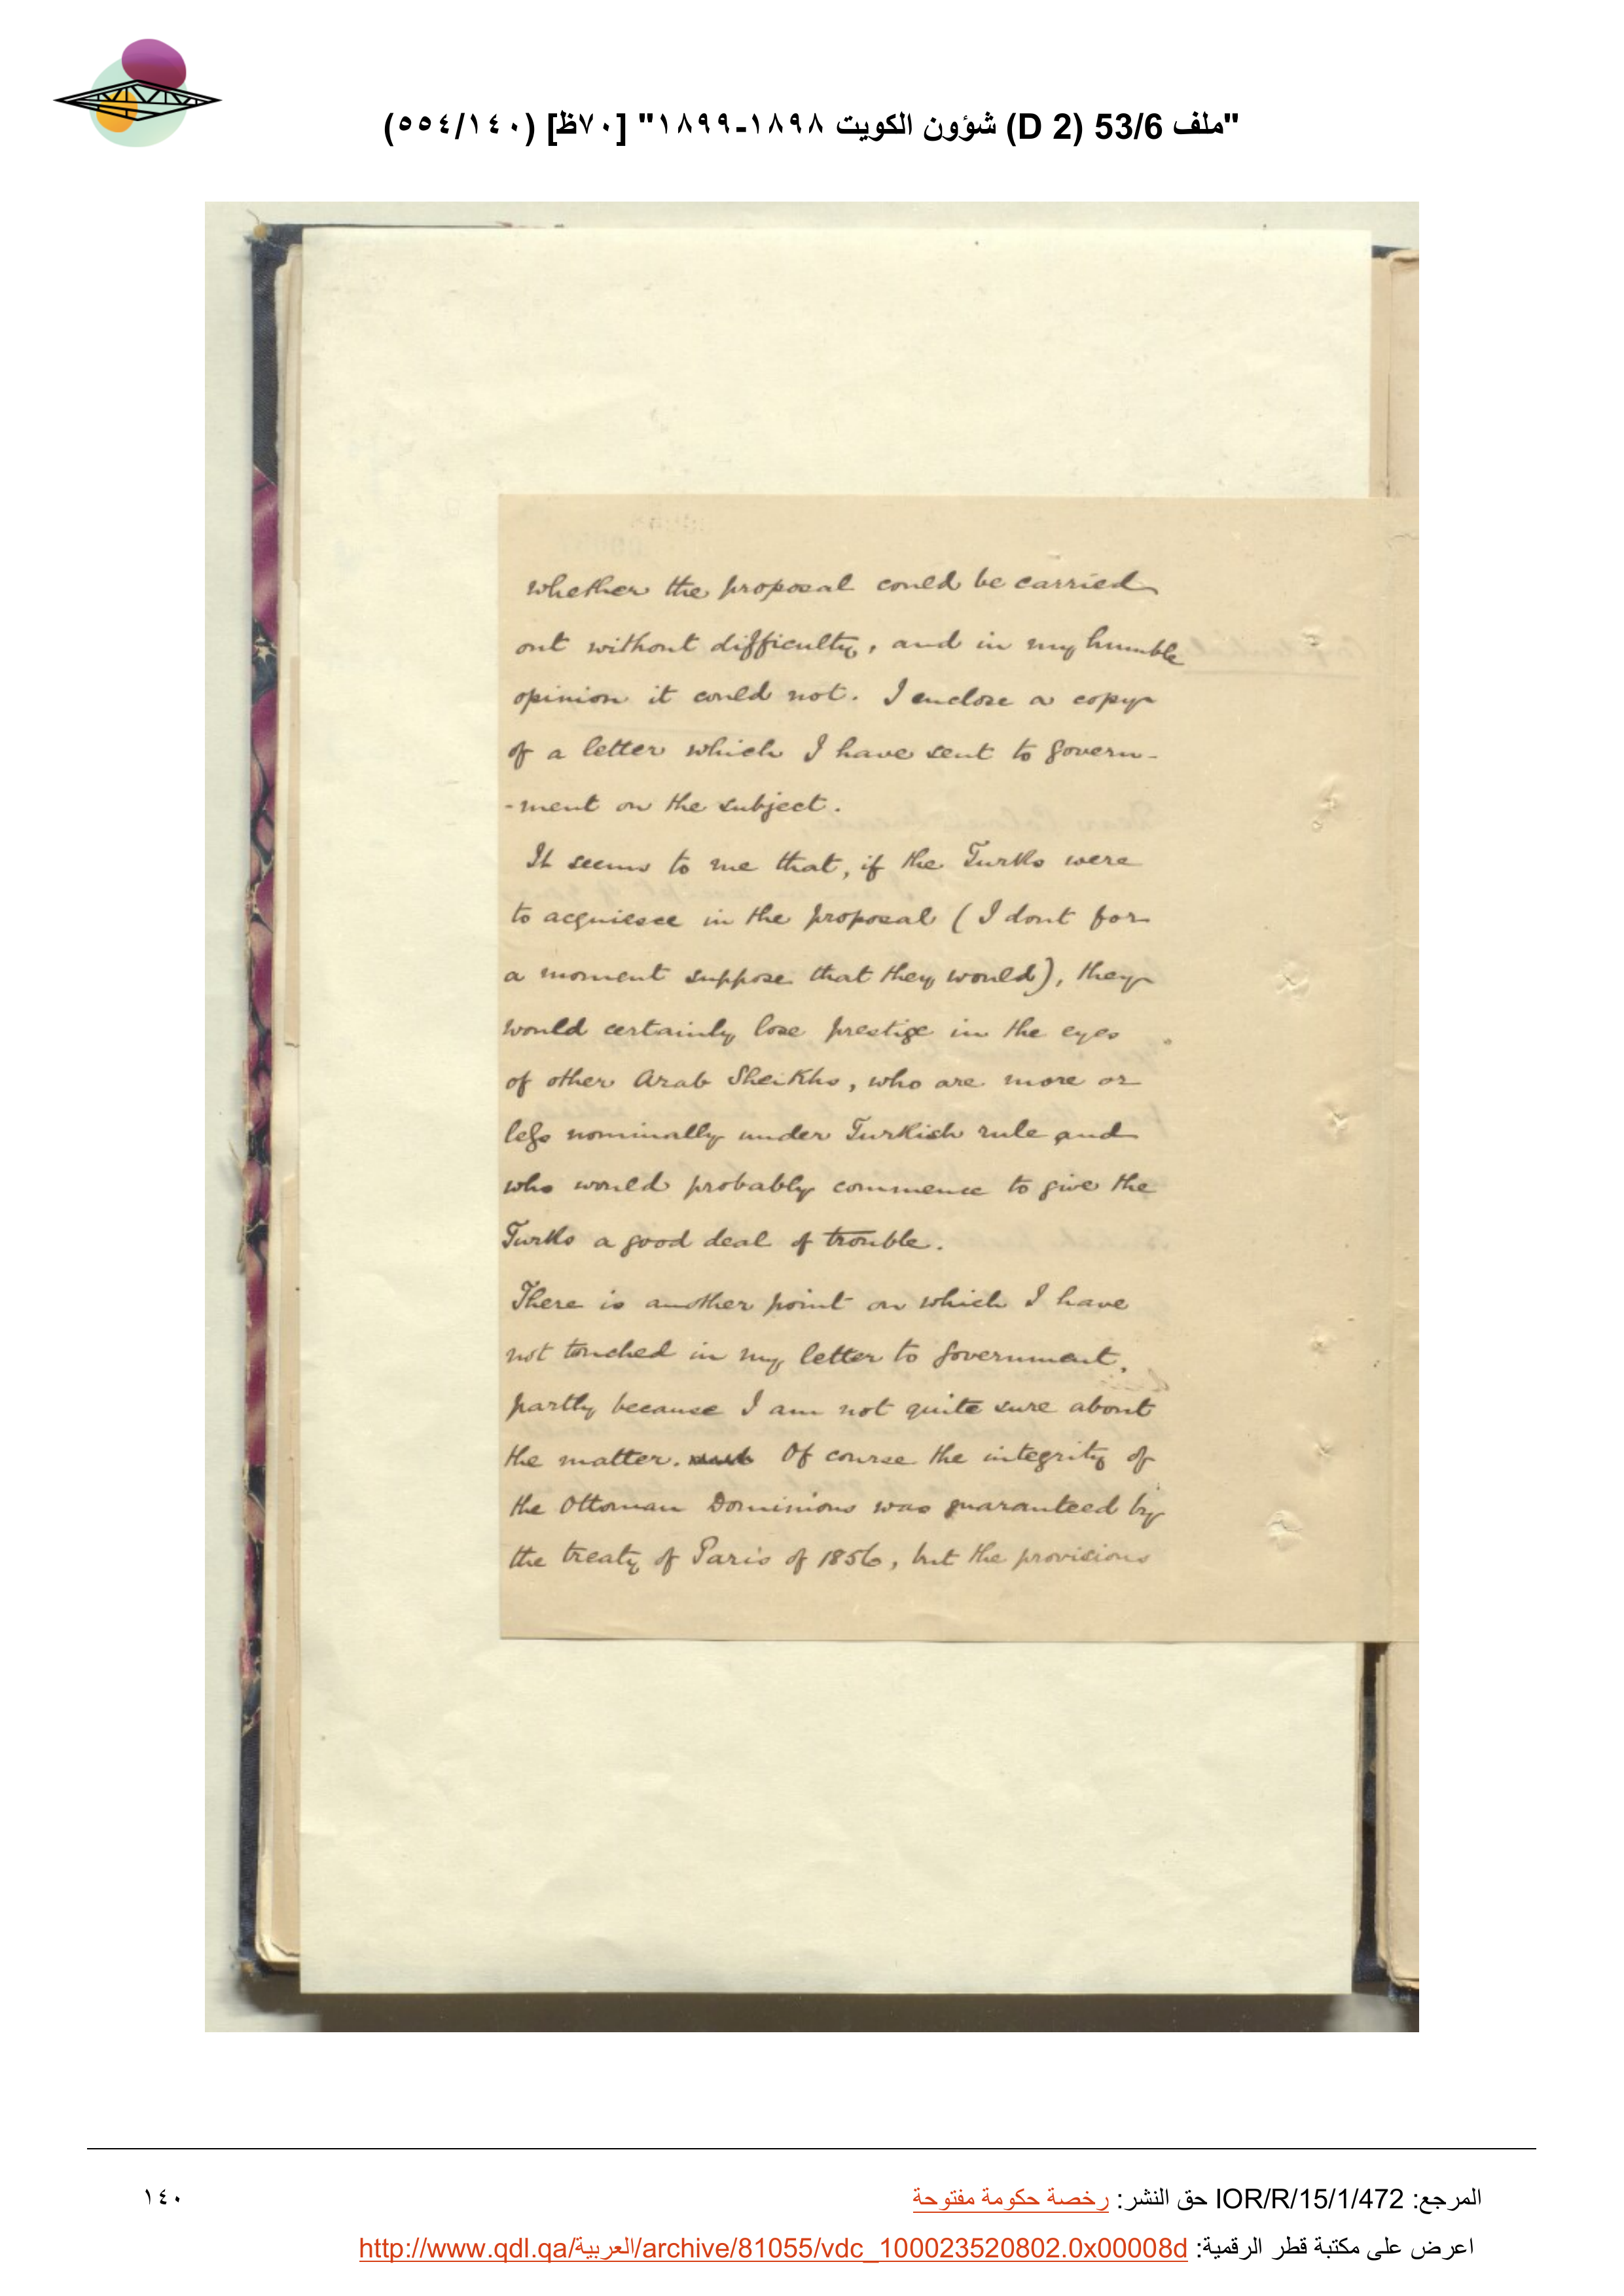 "ملف 53/6 (D 2) شؤون الكويت ١٨٩٨-١٨٩٩" [٧٠ظ] (٥٥٤/١٤٠)
whether the proposal could be carried
out without difficulty, and in my humble
opinion it could not. I enclose a copy
of a letter which I have sent to Govern-
-ment on the subject.
It seems to me that, if the Turks were
to acquiesce in the proposal (I dont for
a moment suppose that they would), they
would certainly lose prestige in the eyes
of other Arab Sheikhs, who are more or
less nominally under Turkish rule and
who would probably commence to give the
Turks a good deal of trouble.
There is another point on which I have
not touched in my letter to Government,
partly because I am not quite sure about
the matter. Of course the integrity of
the Ottoman Dominions was guaranteed by
the treaty of Paris of 1856, but the provisions
المرجع: IOR/R/15/1/472 حق النشر: رخصة حكومة مفتوحة
١٤٠
اعرض على مكتبة قطر الرقمية: http://www.qdl.qa/العربية/archive/81055/vdc_100023520802.0x00008d